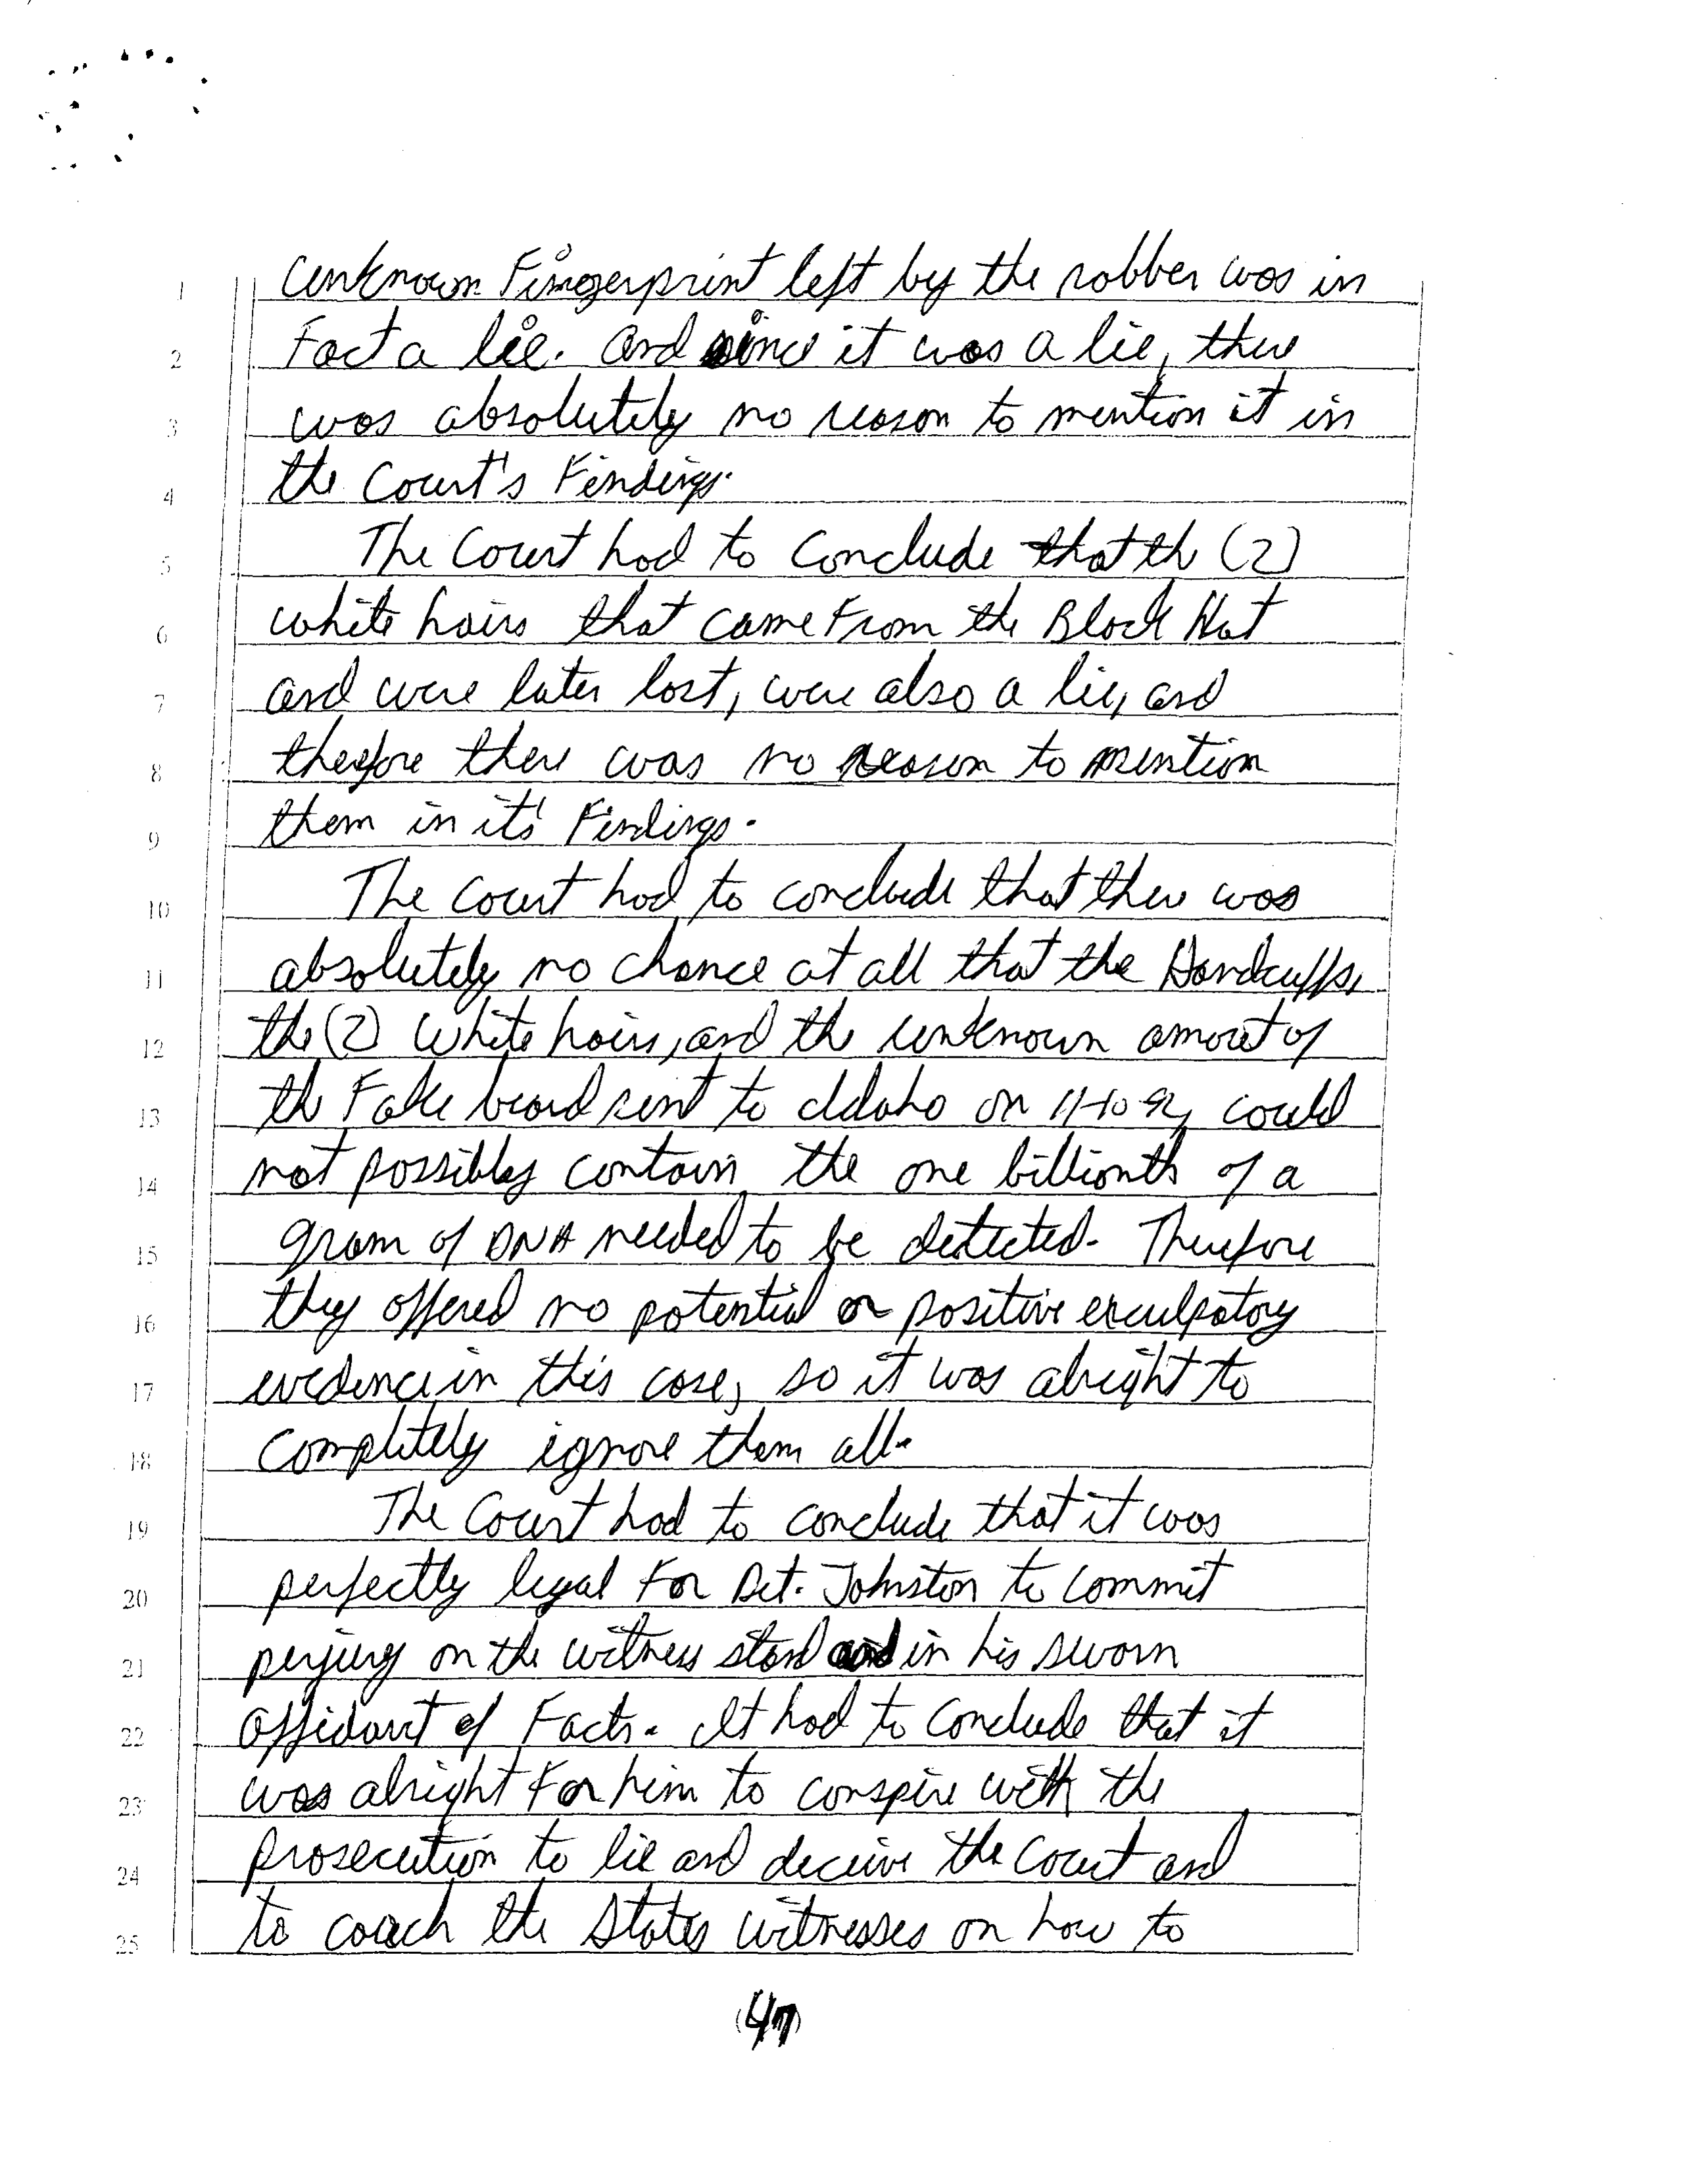 1 unknown Fingerprint left by the robber was in
2 Fact a lie. And since it was a lie, there
3 was absolutely no reason to mention it in
4 the Court's Findings.
5 The Court had to Conclude that the (2)
6 white hairs that came From the Black Hat
7 and were later lost, were also a lie, and
8 therefore there was no reason to mention
9 them in it's Findings.
10 The Court had to conclude that there was
11 absolutely no chance at all that the Handcuffs,
12 the (2) White hairs, and the unknown amount of
13 the Fake beard sent to Idaho on 11-10-92, could
14 not possibly contain the one billionth of a
15 gram of DNA needed to be detected. Therefore
16 they offered no potential or positive exculpatory
17 evidence in this case, so it was alright to
18 completely ignore them all.
19 The Court had to conclude that it was
20 perfectly legal For Det. Johnston to commit
21 perjury on the witness stand and in his sworn
22 Affidavit of Facts. It had to Conclude that it
23 was alright For him to conspire with the
24 prosecution to lie and deceive the Court and
25 to coach the States witnesses on how to
(47)